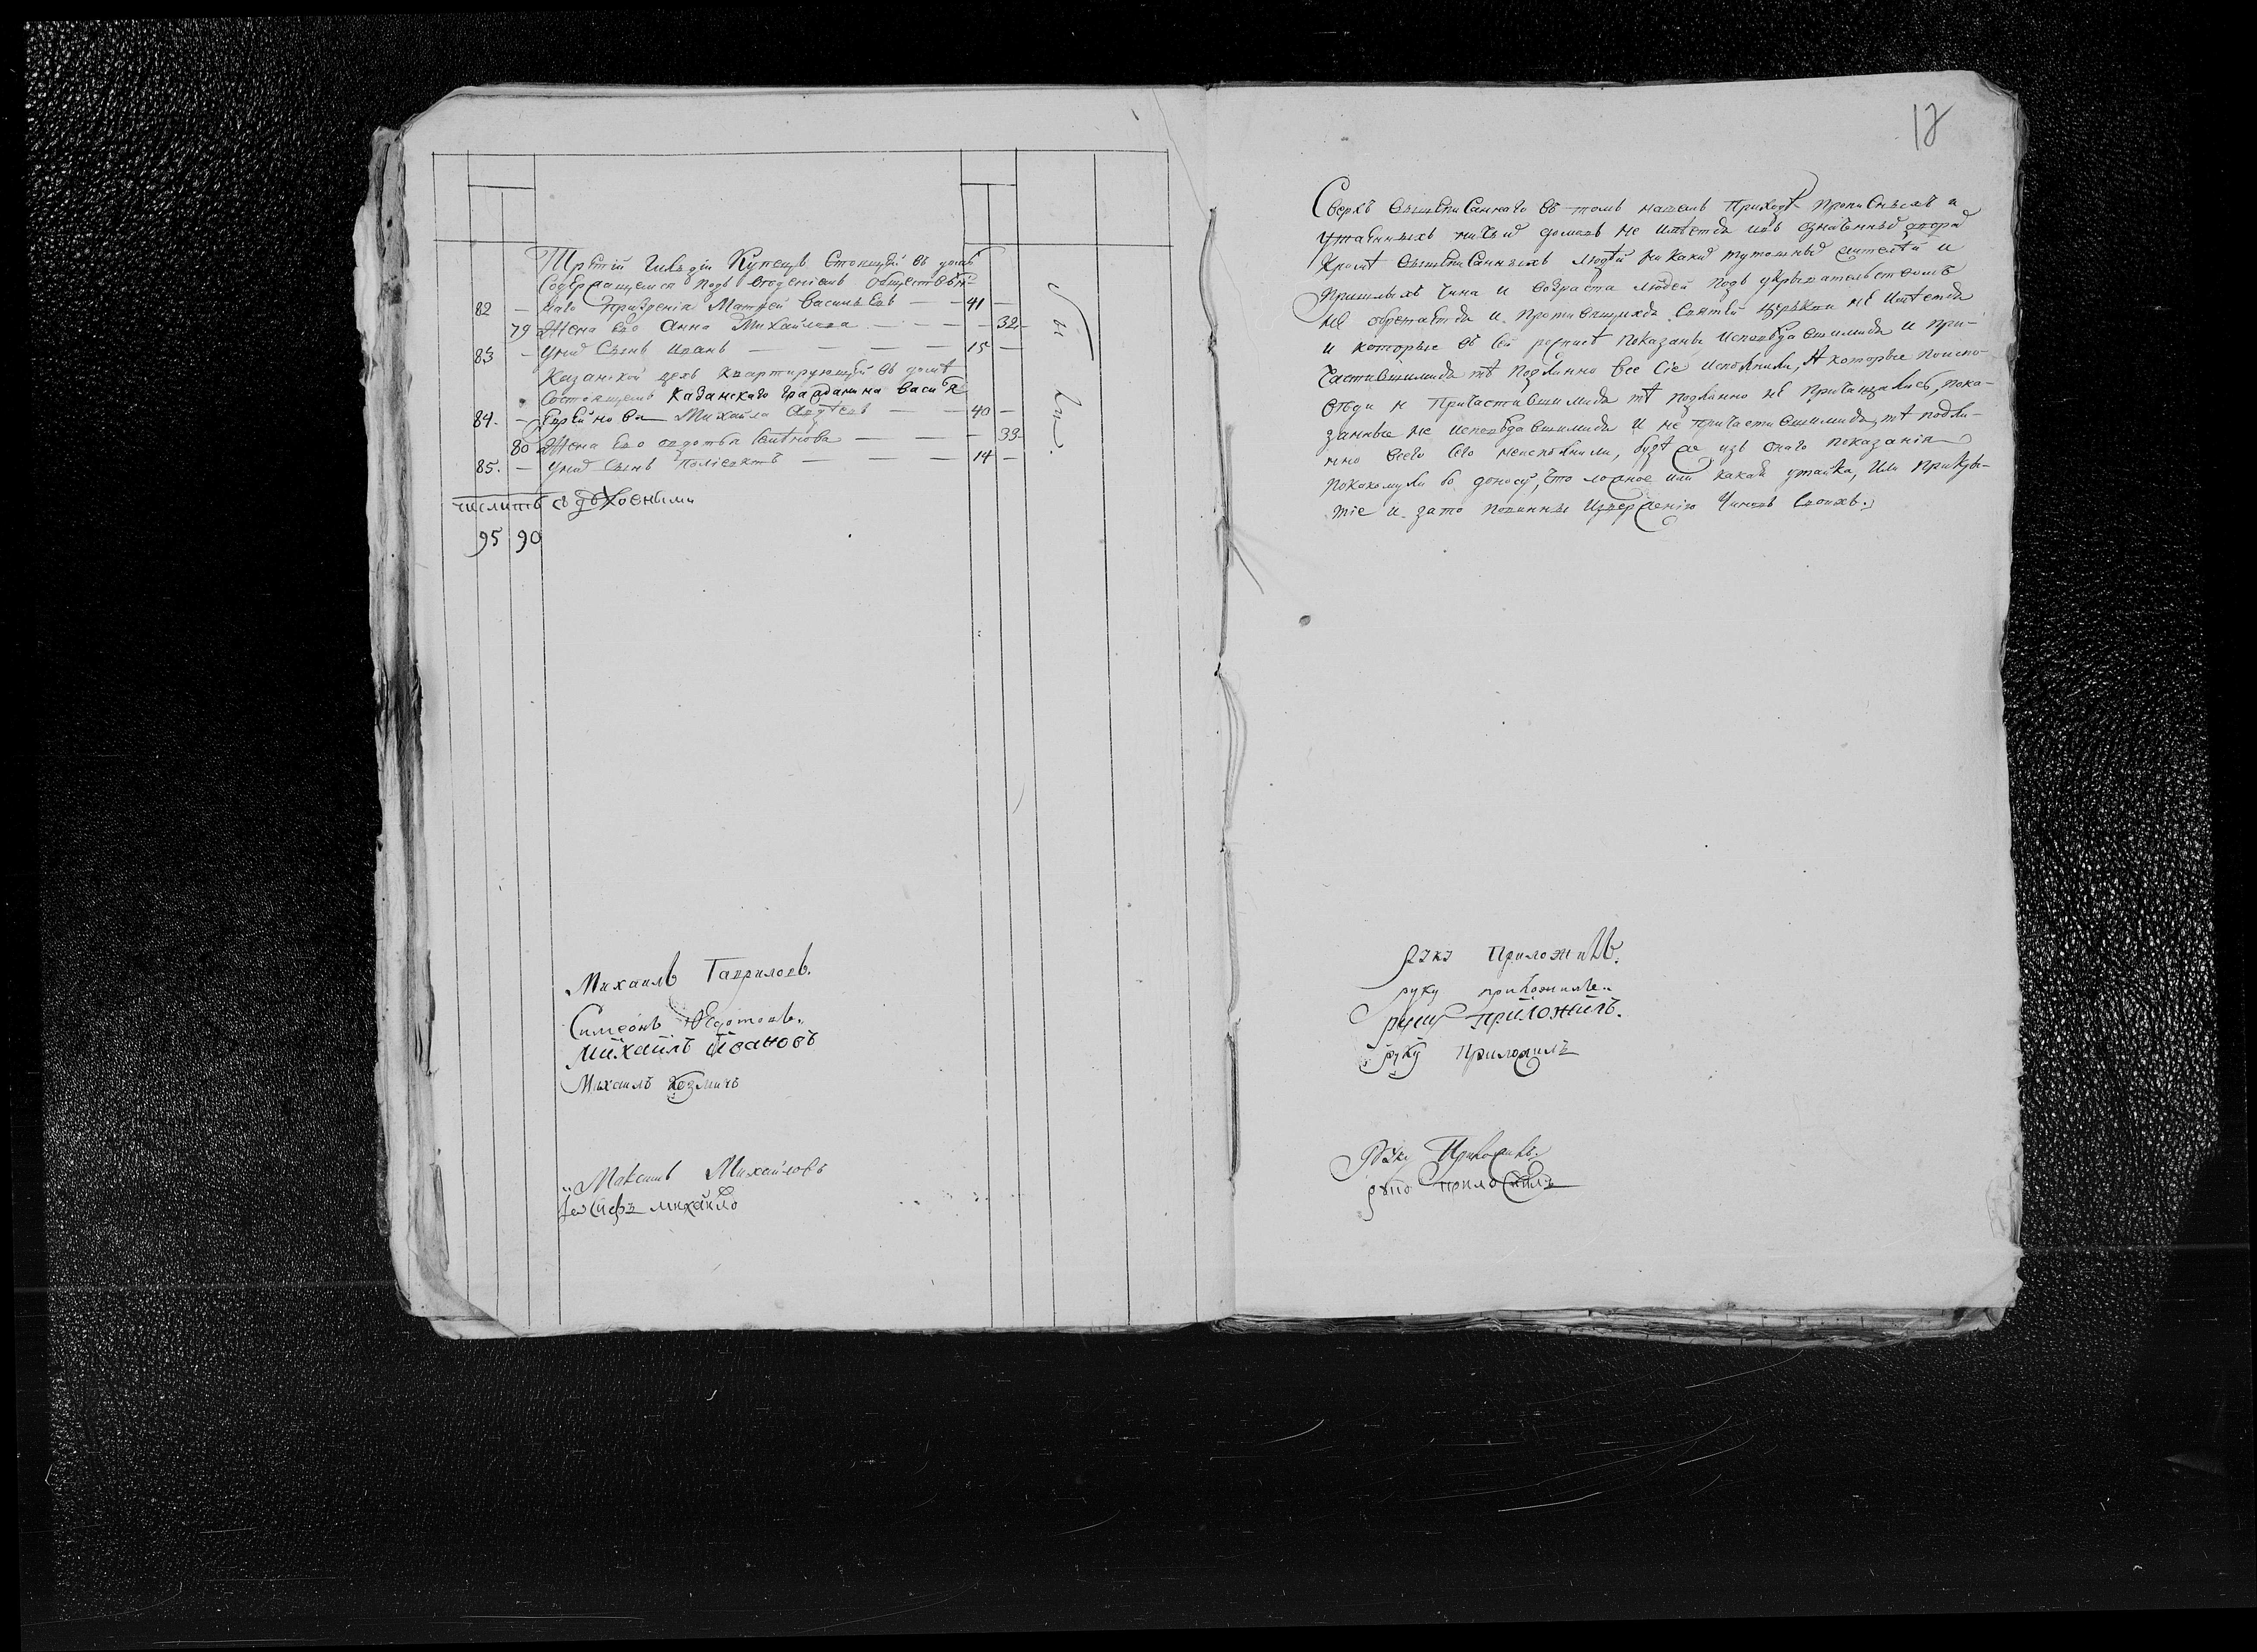 Третій гилъдіи Купецъ Стоящій въ домѣ
Содержащемся подъ вѣденіемъ обществен-
82 — наго призренія Матѳей Васильевъ — — 41 —
79 Жена Ево Анна Михайлова — — — — 32
83 — У них Сынъ Иванъ — — — — 15 —
Казанской цехъ квартирующій въ домѣ
Состоящемъ Казанскаго гражданина Василья
84. — Михайла Авдѣевъ — — 40 —
80 Жена Ево — — — — 33
85. — У них Сынъ Поліевктъ — — — 14 —
числитъ съ духовными
95 90
Михаилъ Гавриловъ.
Симеонъ Ѳедотовъ.
михаилъ ивановъ
Михаилъ Козмичъ
Максимъ Михайловъ
іѡсифъ михайло
12
Сверхъ вышеписаннаго въ томъ нашемъ приходѣ прописныхъ и
утаенныхъ ничьих домовъ не имѣется и въ означенных дворах
Кромѣ вышеписанныхъ людей никаких тутошных жителей и
Пришлыхъ чина и возраста людей подъ укрывательствомъ
не обретается и противящихся Святѣй церькви не имѣется
и которые въ сей росписѣ показаны исповѣдавшимися и при-
частившимися тѣ подлинно все сіе исполнили, А которые по испо-
вѣди н причастившимися тѣ подлинно не причащались, пока-
занные не исповѣдавшимися и не причастившимися тѣ подли-
нно всего сего неисполнили, будѣ же изъ онаго показанія
по какому ли бо доносу, что ложное или какая утайка, или прикры-
тіе и за то повинны извержению Чиновъ Своихъ.
руку приложилъ.
руку приложилъ.
руку приложилъ.
руку приложилъ
Руку Приложилъ.
руку приложилъ